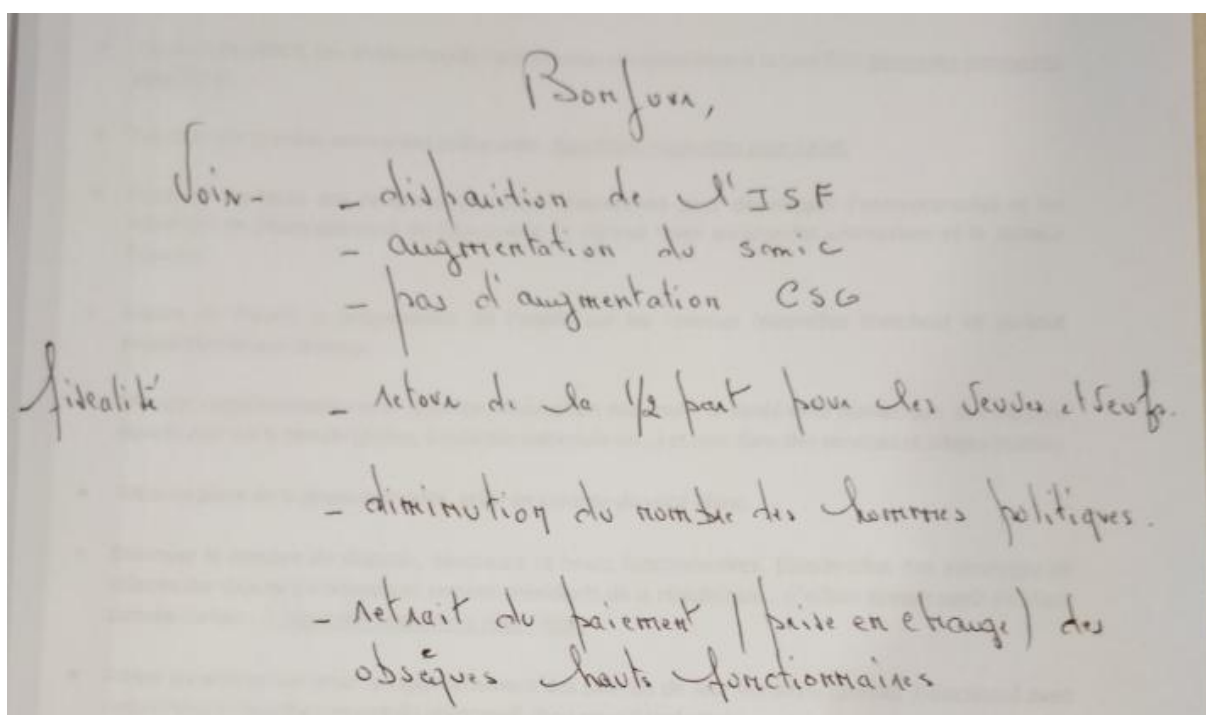 Bonjour,
Voir - - disparition de l'ISF
- augmentation du smic
- pas d'augmentation CSG
fiscalité - retour de la 1/2 part pour les veuves et veufs.
- diminution du nombre des hommes politiques.
- retrait du paiement (prise en charge) des
obsèques hauts fonctionnaires